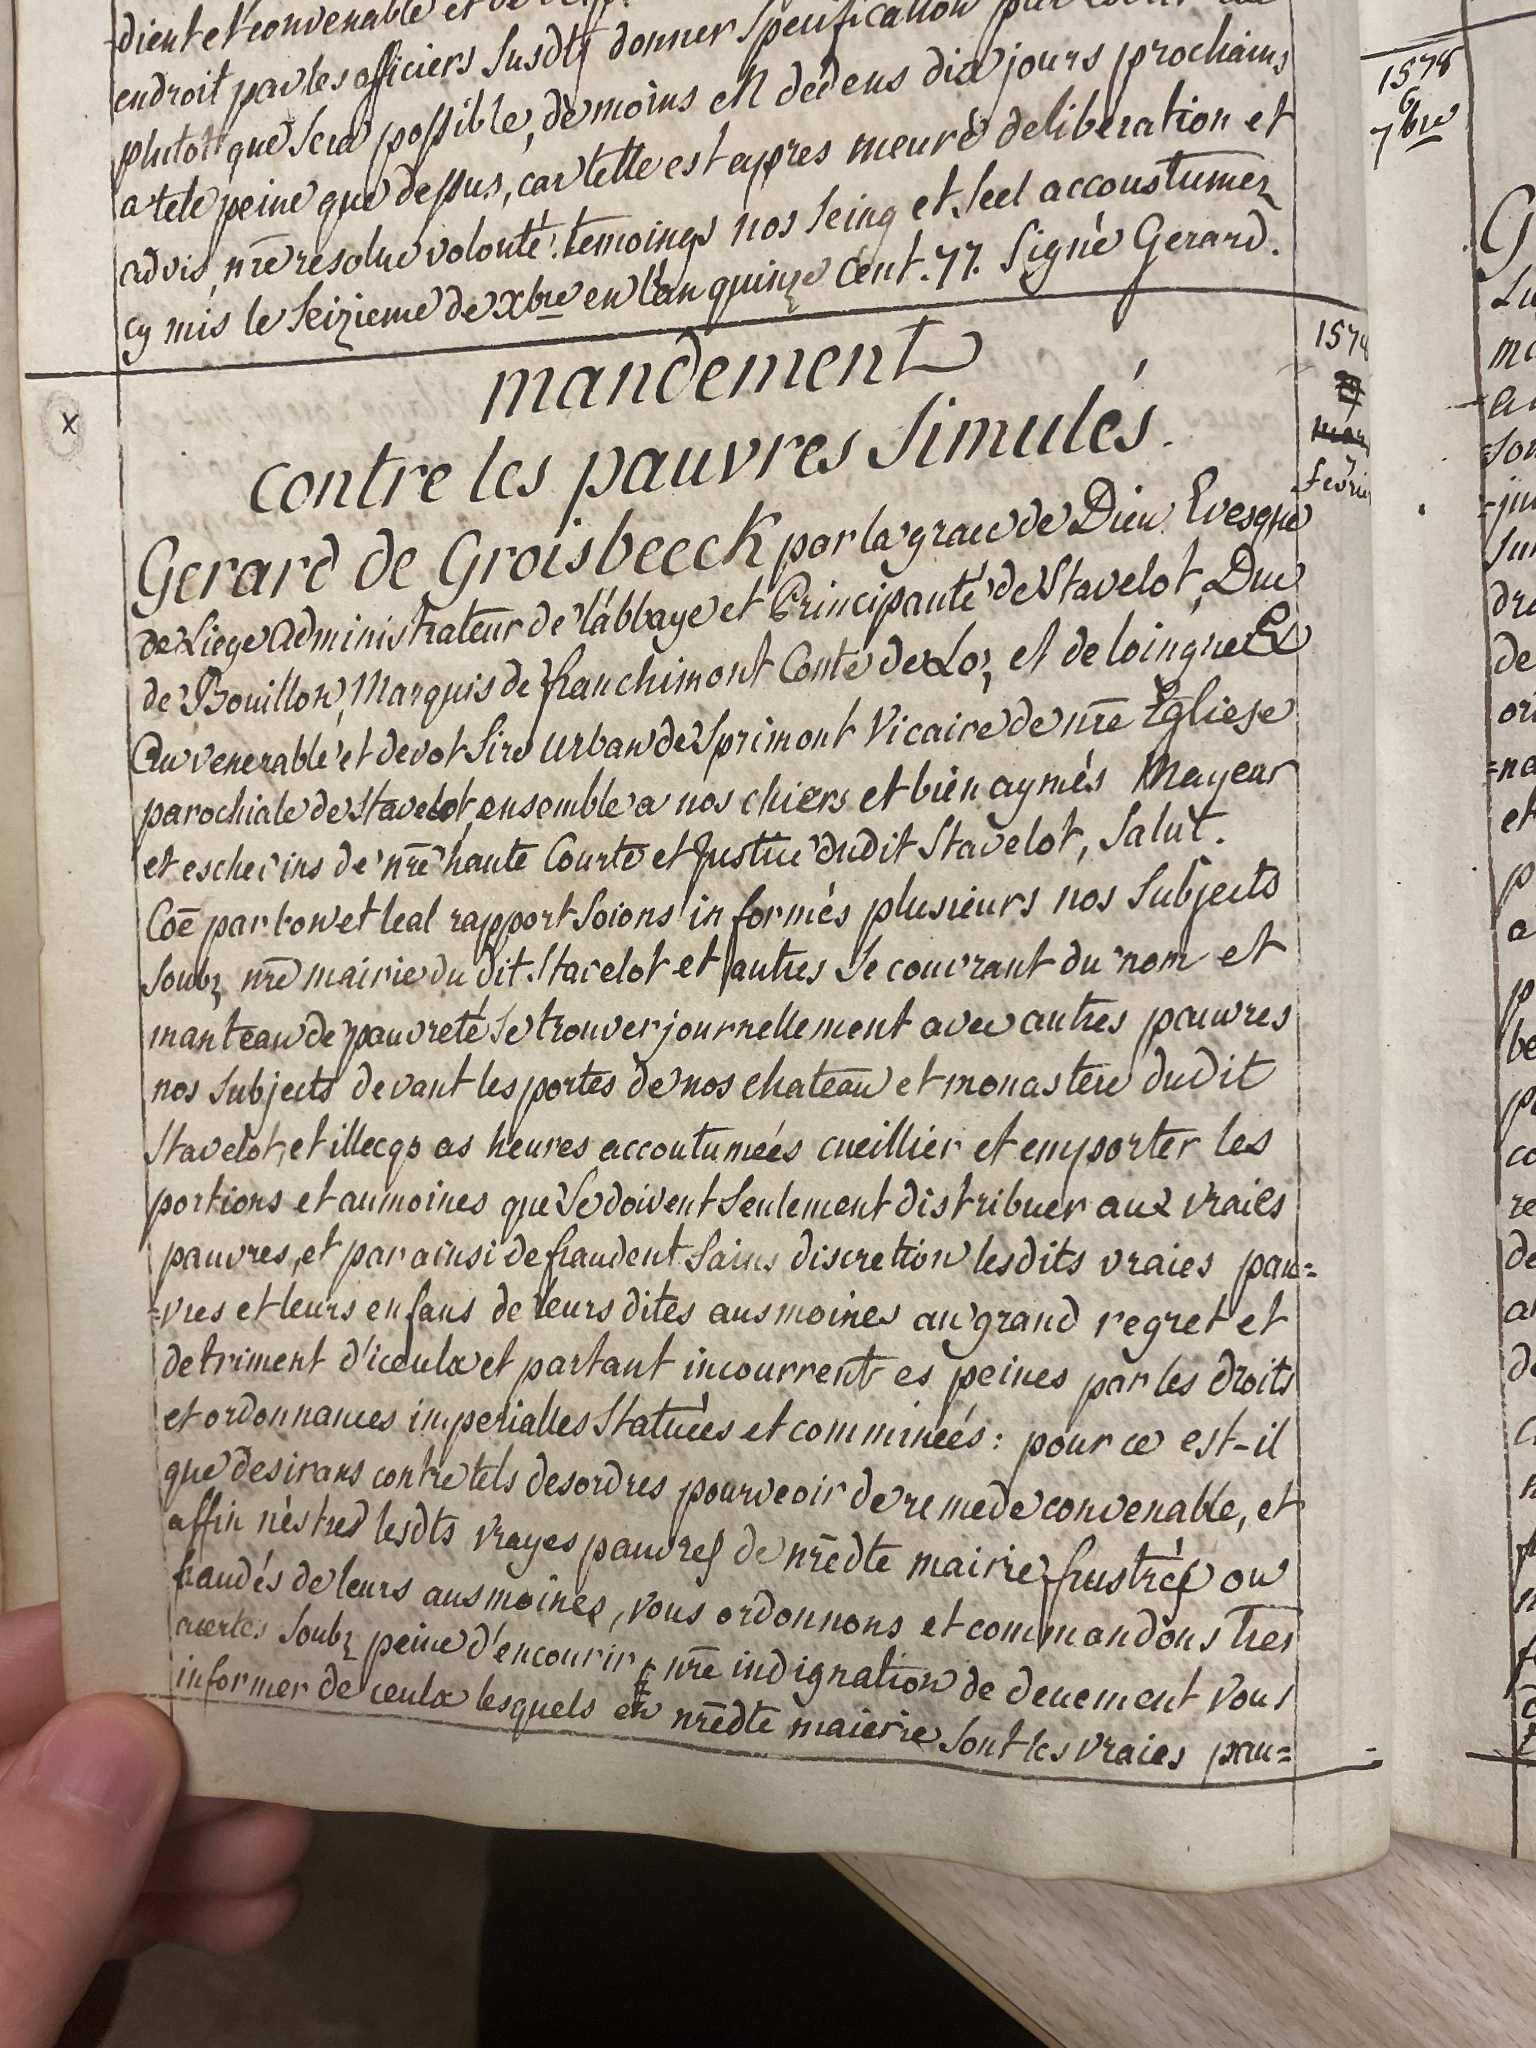 dient et convenable et de
endroit par les officiers susdts donner specification par
plutot que sera possible, de moins en dedens dix jours prochains
a tele peine que dessus, car telle est apres meure deliberation et
advis, nre resolue volonté. temoings nos seing et seel accoustumez
cy mis le seizieme de xbre en l'an quinze cent. 77. signé Gerard.
mandement
contre les pauvres simulés.
1578
fevrier
x
Gerard de Groisbeeck par la grace de Dieu Evesque
de Liege administrateur de l'abbaye et Principauté de Stavelot, Duc
de Bouillon, Marquis de franchimont Conte de Loz, et de loingne Ec
au venerable et devot sire urban de Sprimont Vicaire de nre Egliese
parochiale de Stavelot, ensemble a nos chiers et bien aymés Mayeur
et eschevins de nre haute Courte et Justice dudit Stavelot, Salut.
Coe par bon et leal rapport soions informés plusieurs nos Subjects
soubz nre mairie du dit Stavelot et autres se couvrant du nom et
manteau de pauvreté se trouver journellement avec autres pauvres
nos subjects devant les portes de nos chateau et monastere dudit
Stavelot, et illecqs as heures accoutumées cueillier et emporter les
portions et aumoines que se doivent seulement distribuer aux vraies
pauvres, et par ainsi defraudent sains discretion lesdits vraies pau=
=vres et leurs enfans de leurs dites ausmoines au grand regret et
detriment d'iceulx et partant incourrent es peines par les droits
et ordonnances imperialles statuées et comminées: pour ce est-il
que desirans contre tels desordres pourveoir de remede convenable, et
affin n'estred lesdts vrayes pauvres de nredte mairie frustrés ou
fraudés de leurs ausmoines, vous ordonnons et commandons tres
acertes soubz peine d'encourir nre indignation de deuement vous
informer de ceulx lesquels en nredte maierie sont les vraies pau=
1578
6
7bre